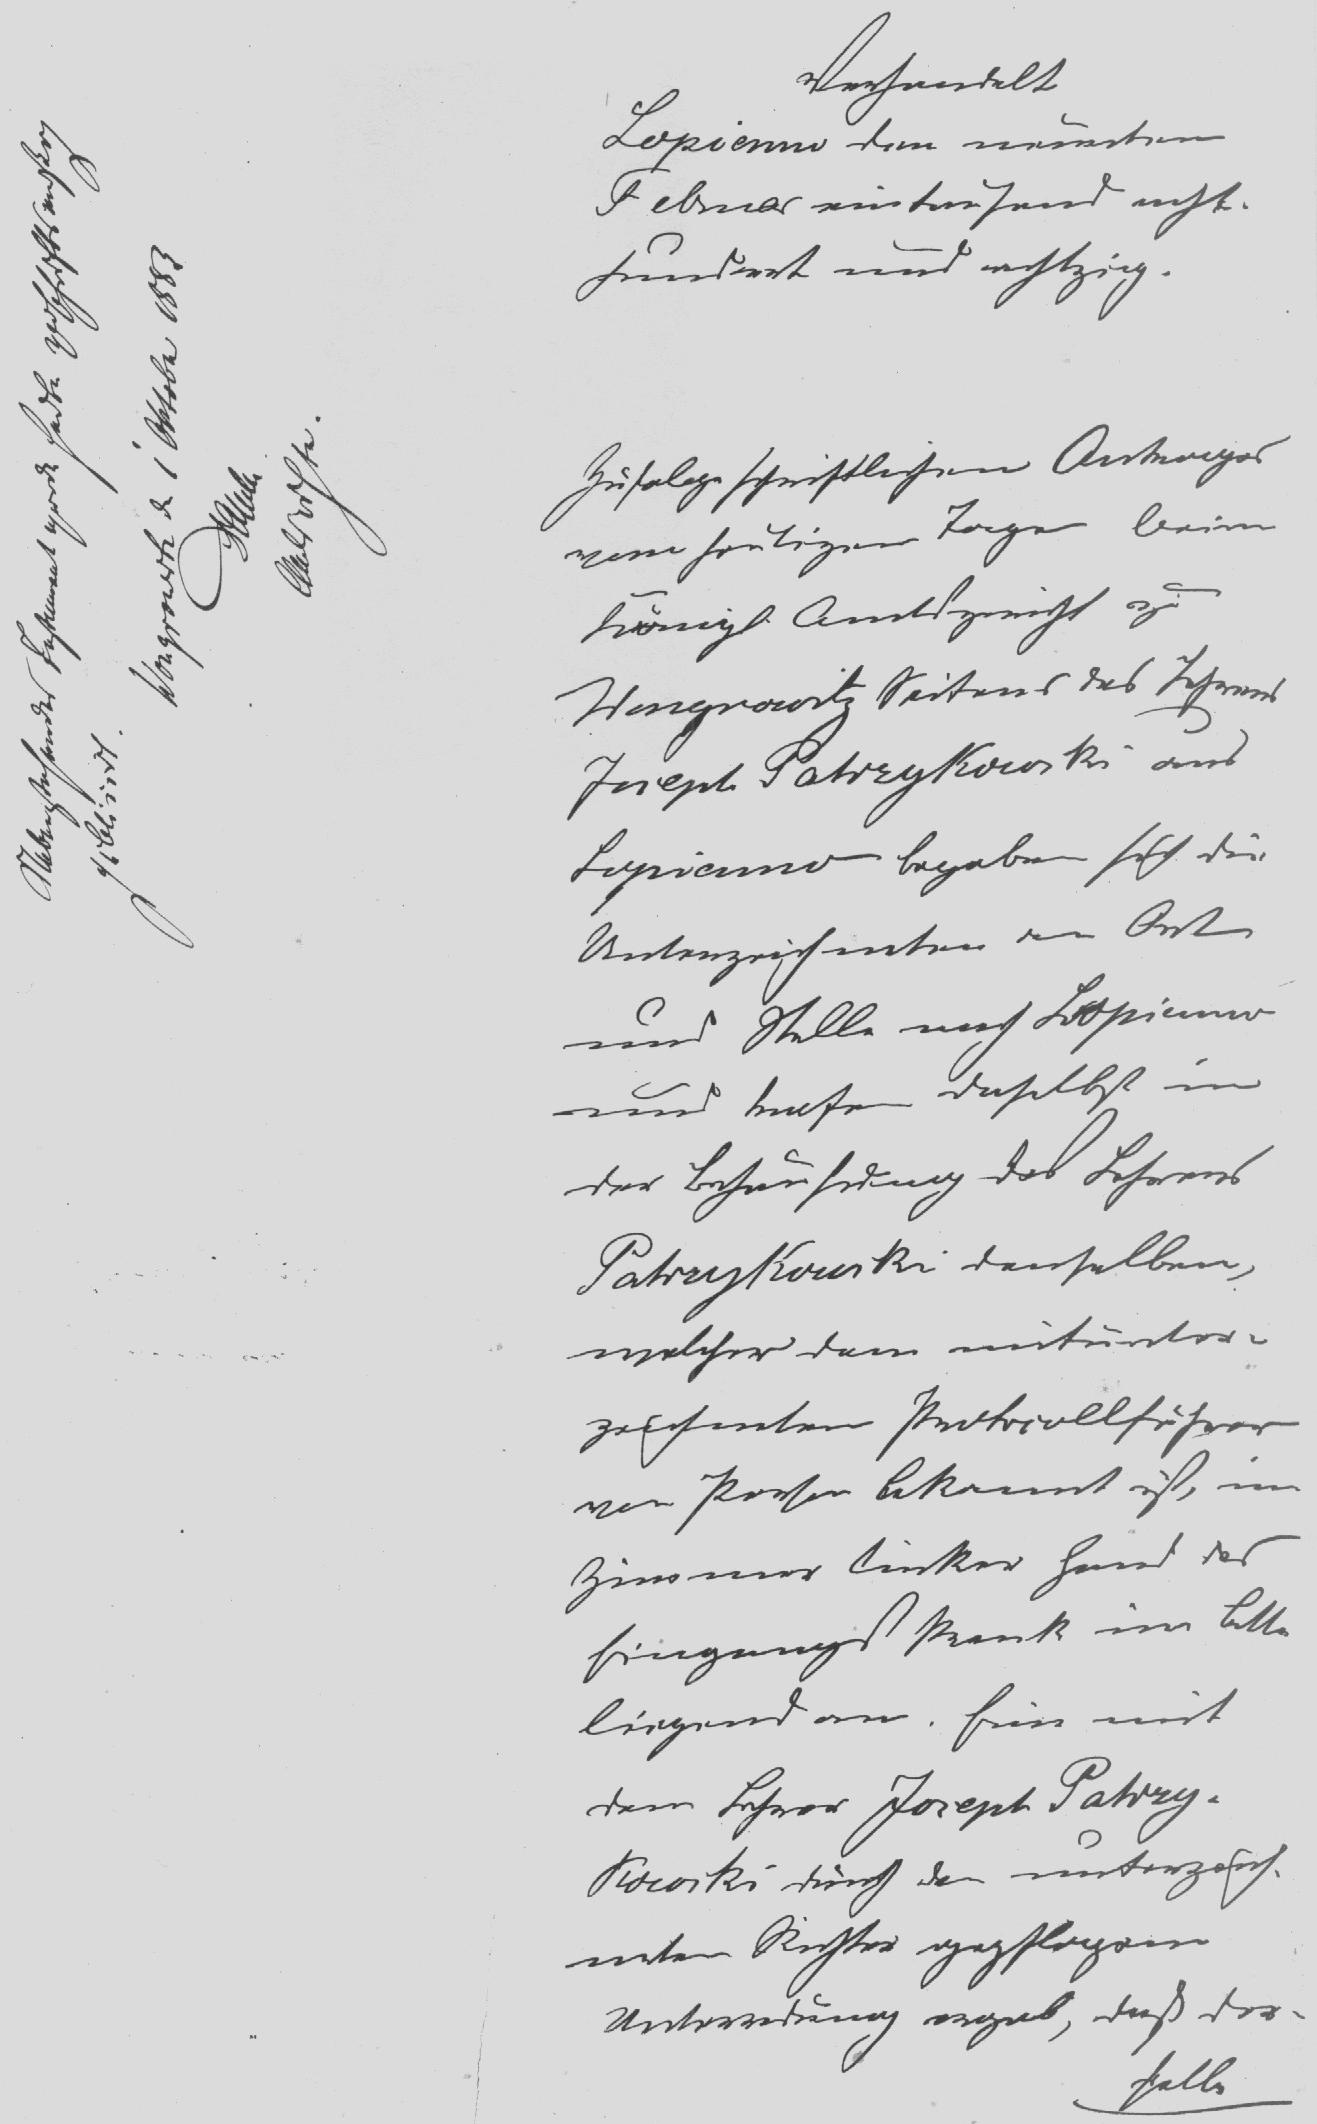 Verhandelt
Lopienno den neunten
Februar eintausend acht-
hundert und achtzig.
Zufolge schriftlichen Antrages
vom heutigen Tage beim
Königl. Amtsgericht zu
Wongrowitz Seitens des Lehrers
Joseph Patrzykowski aus
Lopienno begaben sich die
Unterzeichneten an Ort
und Stelle nach Lopienno
und trafen daselbst in
der Behausung des Lehrers
Patrzykowski denselben,
welcher dem mitunter-
zeichneten Protocollführer
von Person bekannt ist, im
Zimmer linker Hand des
Eingangs krank im Bette
liegend an. Eine mit
dem Lehrer Joseph Patrzy-
kowski durch den unterzeich-
neten Richter gepflogene
Unterredung ergab, daß der-
selbe
Nebenstehendes Testament wurde heute vorschriftsmäßig
publicirt.
Wongrowitz d. 1 Oktober 1883
Amtsrichter.